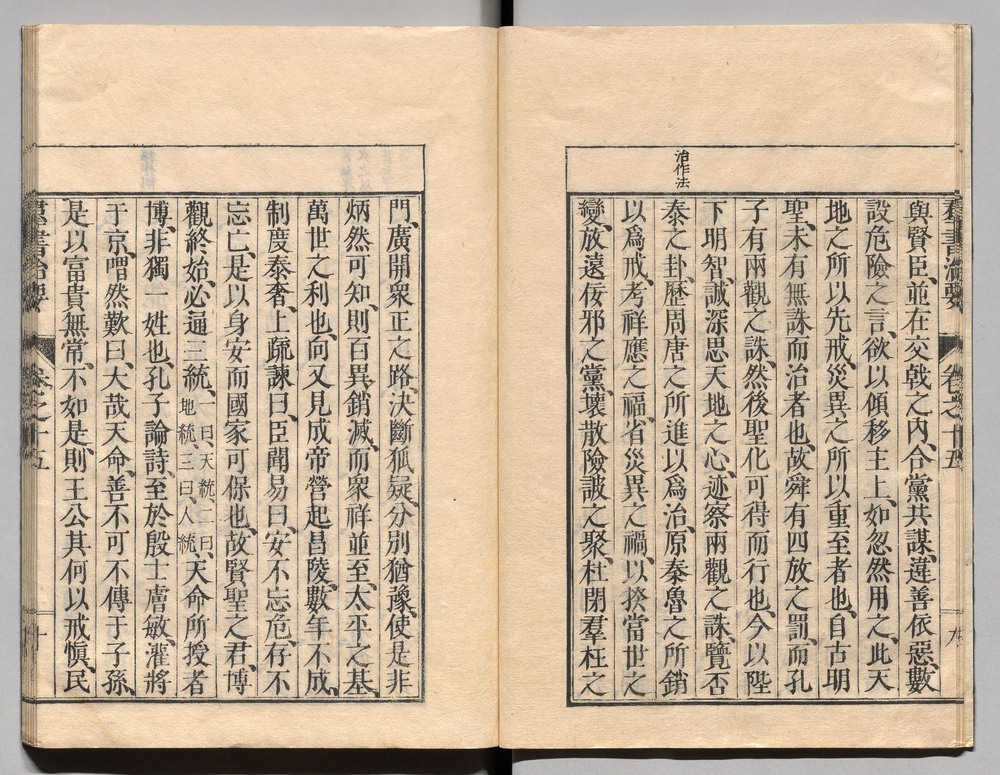 羣書治要 卷之十五 九
治作法
與賢臣、並在交戟之內、合黨共謀、違善依惡、數
設危險之言、欲以傾移主上、如忽然用之、此天
地之所以先戒、災異之所以重至者也、自古明
聖、未有無誅而治者也、故舜有四放之罰、而孔
子有兩觀之誅、然後聖化可得而行也、今以陛
下明智、誠深思天地之心、迹察兩觀之誅、覽否
泰之卦、歷周唐之所進以爲治、原秦魯之所銷
以爲戒、考祥應之福、省災異之禍、以揆當世之
變、放遠佞邪之黨、壞散險詖之聚、杜閉羣枉之
門、廣開衆正之路、決斷狐疑、分別猶豫、使是非
炳然可知、則百異銷滅、而衆祥並至、太平之基、
萬世之利也、向又見成帝營起昌陵、數年不成、
制度泰奢、上疏諫曰、臣聞易曰、安不忘危、存不
忘亡、是以身安而國家可保也、故賢聖之君、博
觀終始、必通三統、一曰、天統、二曰、地統、三曰、人統、天命所授者
博、非獨一姓也、孔子論詩、至於殷士膚敏、灌將
于京、喟然歎曰、大哉天命、善不可不傳于子孫、
是以富貴無常、不如是、則王公其何以戒愼、民
羣書治要 卷之十五 十